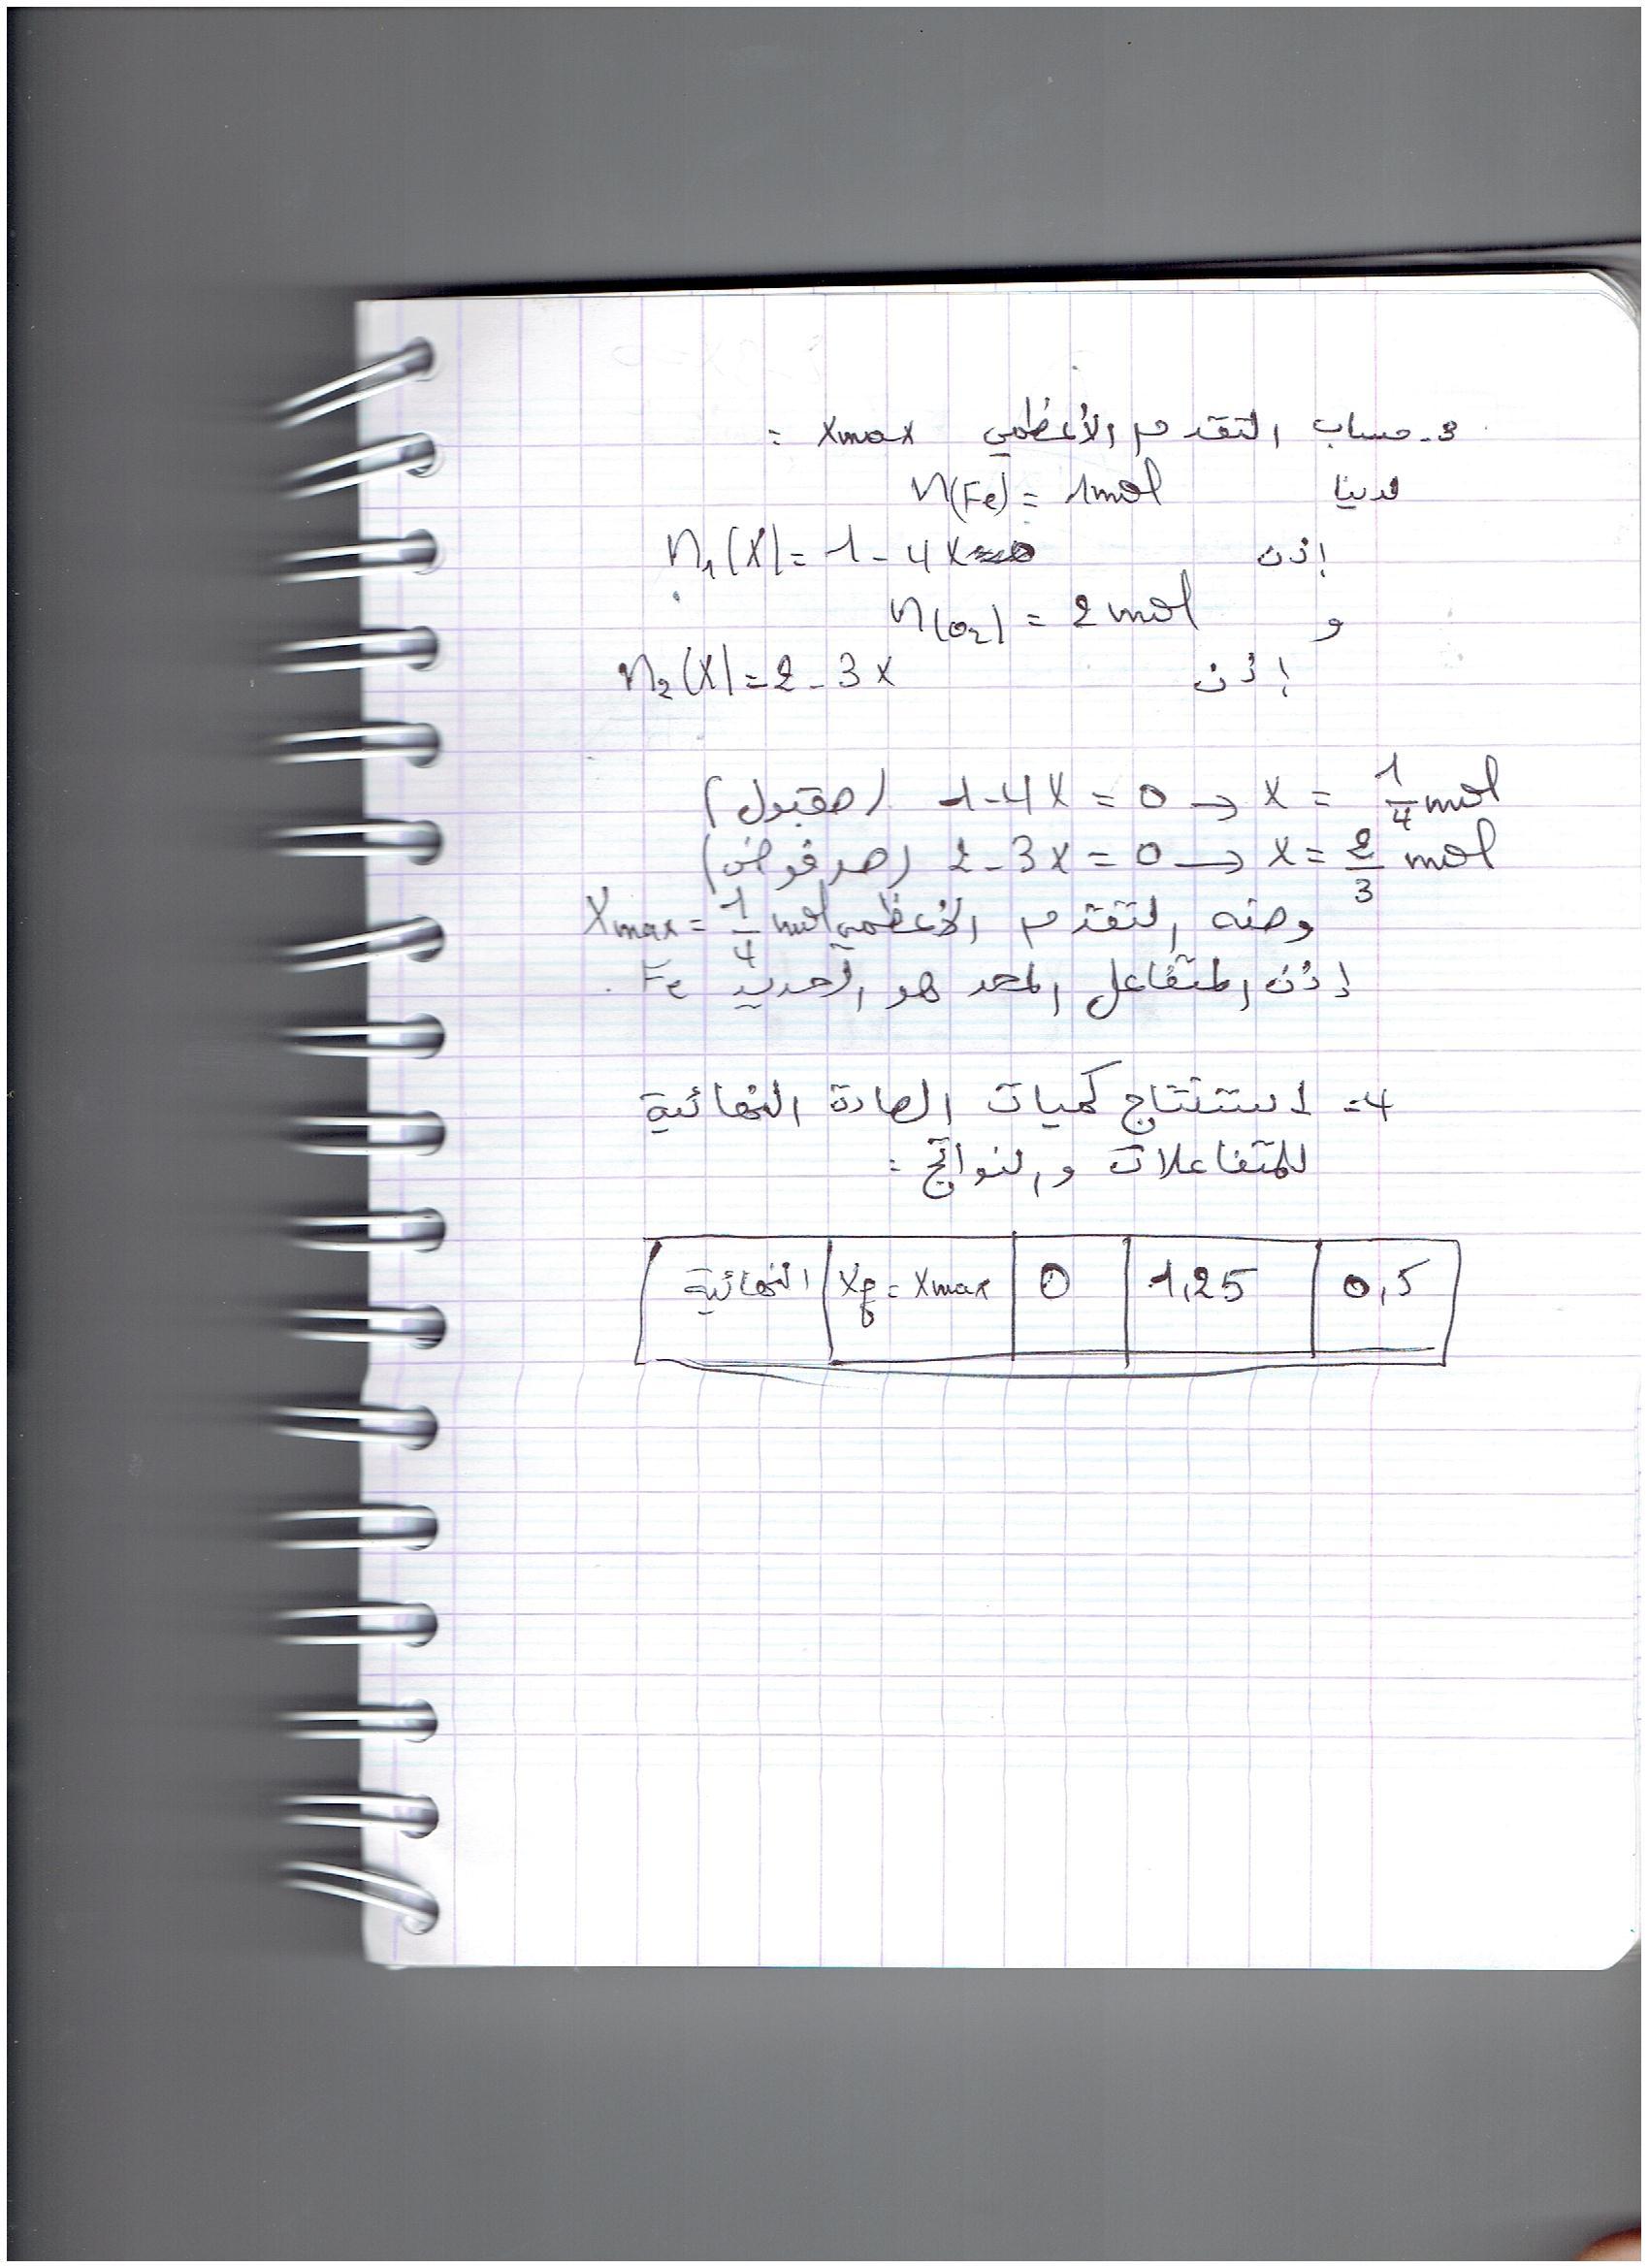 3- حساب التقدم الأعظمي xmax :
لدينا n(Fe) = 1mol
إذن n₁(x) = 1-4x
و n(O₂) = 2 mol
إذن n₂(x) = 2-3x
1-4x = 0 → x = 1/4 mol (مقبول)
2-3x = 0 → x = 2/3 mol (مرفوض)
ومنه التقدم الأعظمي Xmax = 1/4 mol
إذن المتفاعل المحد هو الحديد Fe .
4- استنتاج كميات المادة النهائية
للمتفاعلات والنواتج :
النهائية | xf = xmax | 0 | 1,25 | 0,5